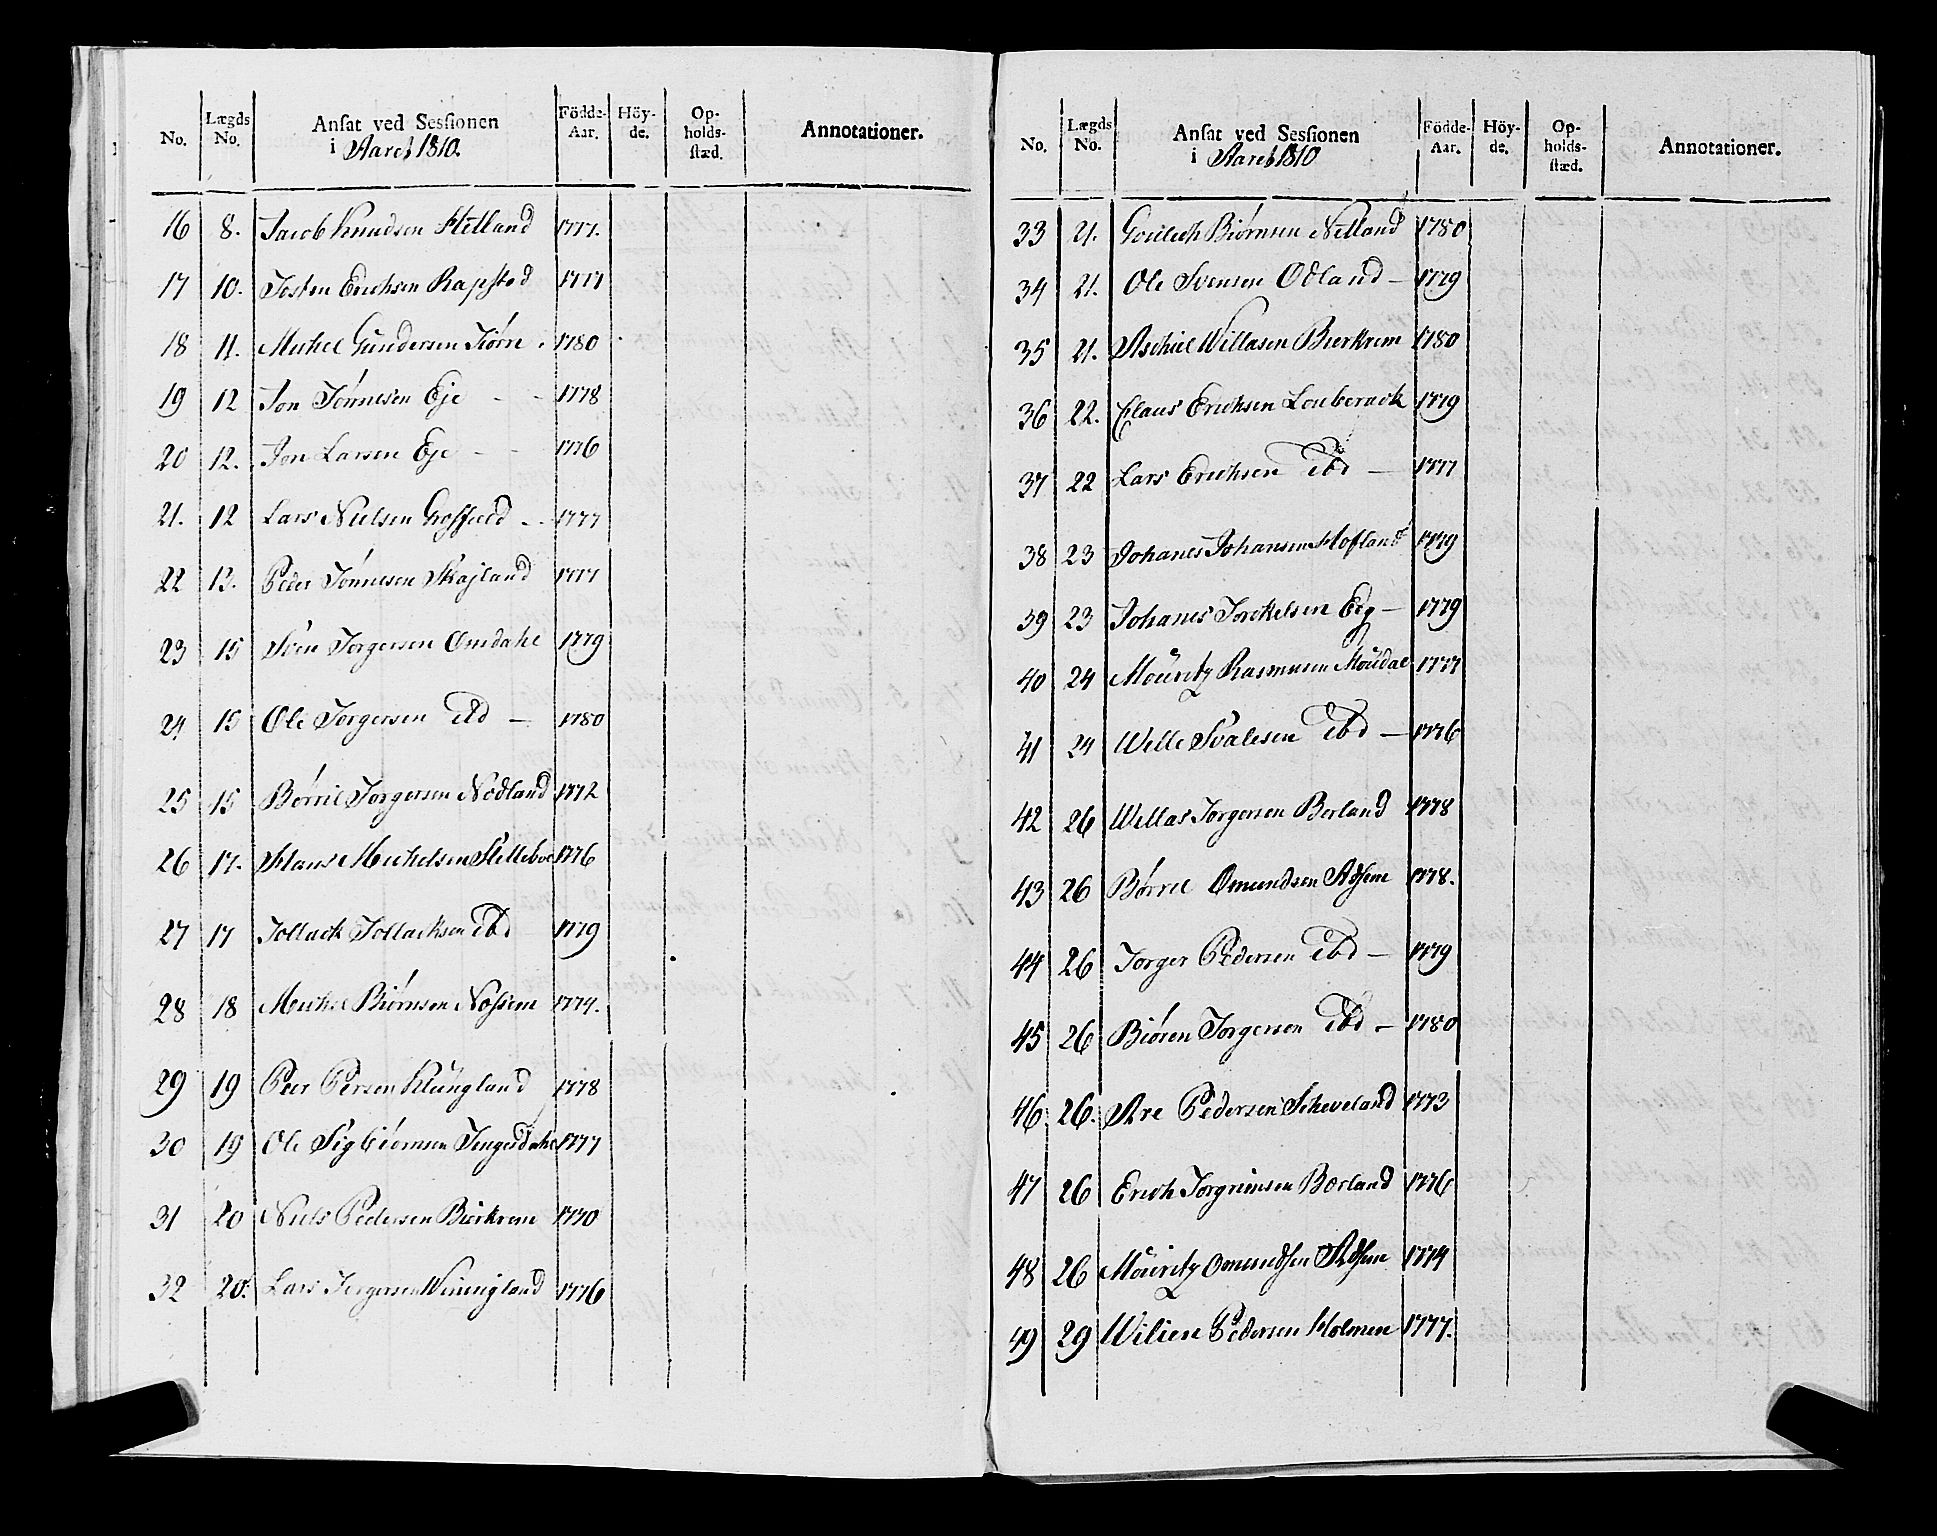 No. Lægds No. Ansat ved Sessionen i Aaret 1810. Födde-Aar. Höy-de. Op-holds-stæd. Annotationer.
16 8. Jacob Knudsen Hetland 1777.
17 10. Josten Erichsen Rapstad 1777
18 11. Michel Gundersen Tiørn 1780
19 12 Jon Tönnesen Eje - - 1778
20 12. Jon Larsen Eje - - 1776
21. 12 Lars Nielsen 1777
22 13. Peder Tönnesen Skojland 1777
23 15 Sven Torgersen Omdahl 1779
24 15 Ole Torgersen ibd — 1780
25 15 Børril Torgersen Nodland 1772
26 17. Hans Michelsen Sletteboe 1776
27 17 Tollack Tollacksen ibd 1779
28 18 Michel Biørnsen Nossem 1774.
29 19 Peer Persen Klungland 1778
30 19 Ole Sigbiørnsen 1777
31 20 Niels Pedersen Bierkrem 1770
32 20. Lars Torgersen 1776
No. Lægds No. Ansat ved Sessionen i Aaret 1810 Födde-Aar. Höy-de. Op-holds-stæd. Annotationer.
33 21. Biørnsen Netland 1780
34 21. Ole Svensen Odland — 1779
35 21. Aschiel Willasen Bierkrem 1780
36 22. Claus Erichsen 1779
37 22 Lars Erichsen ibd — 1777
38 23 Johanes Johansen Hofland 1779
39 23 Johanes Torckelsen Eeg — 1779
40 24 Mouritz Rasmusen Moudal 1777
41 24 Welle Svalesen ibd — 1776
42 26 Wellas Torgersen Berland 1778
43 26 Børril Omundsen Adsem 1778.
44 26 Torger Pedersen ibd — 1779
45 26 Biøren Torgersen ibd — 1780
46. 26. Are Pedersen Scheveland 1773
47 26 Erich Torgrimsen Borland 1776
48 26 Mouritz Omundsen Adsem 1774
49 29 Wilien Pedersen Holmen 1777.